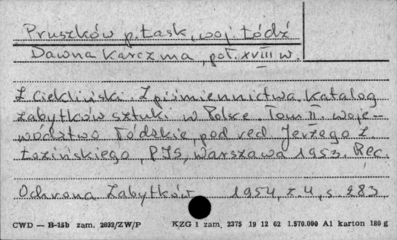 Pruszków p. Łask, woj. Łódź
Dawna Karczma, poł. XVIII w.
Z. Ciekliński Z piśmiennictwa. Katalog
zabytków sztuki w Polsce. Tom II. woje-
wództwo Łódzkie, pod red Jerzego Z.
Łozińskiego, PIS, Warszawa 1953. Rec.
Ochrona Zabytków 1954, z. 4, s. 283
CWD — B-15b zam. 2032/ZW/P KZG 1 zam. 2375 19 12 62 1.570.000 A1 karton 180 g